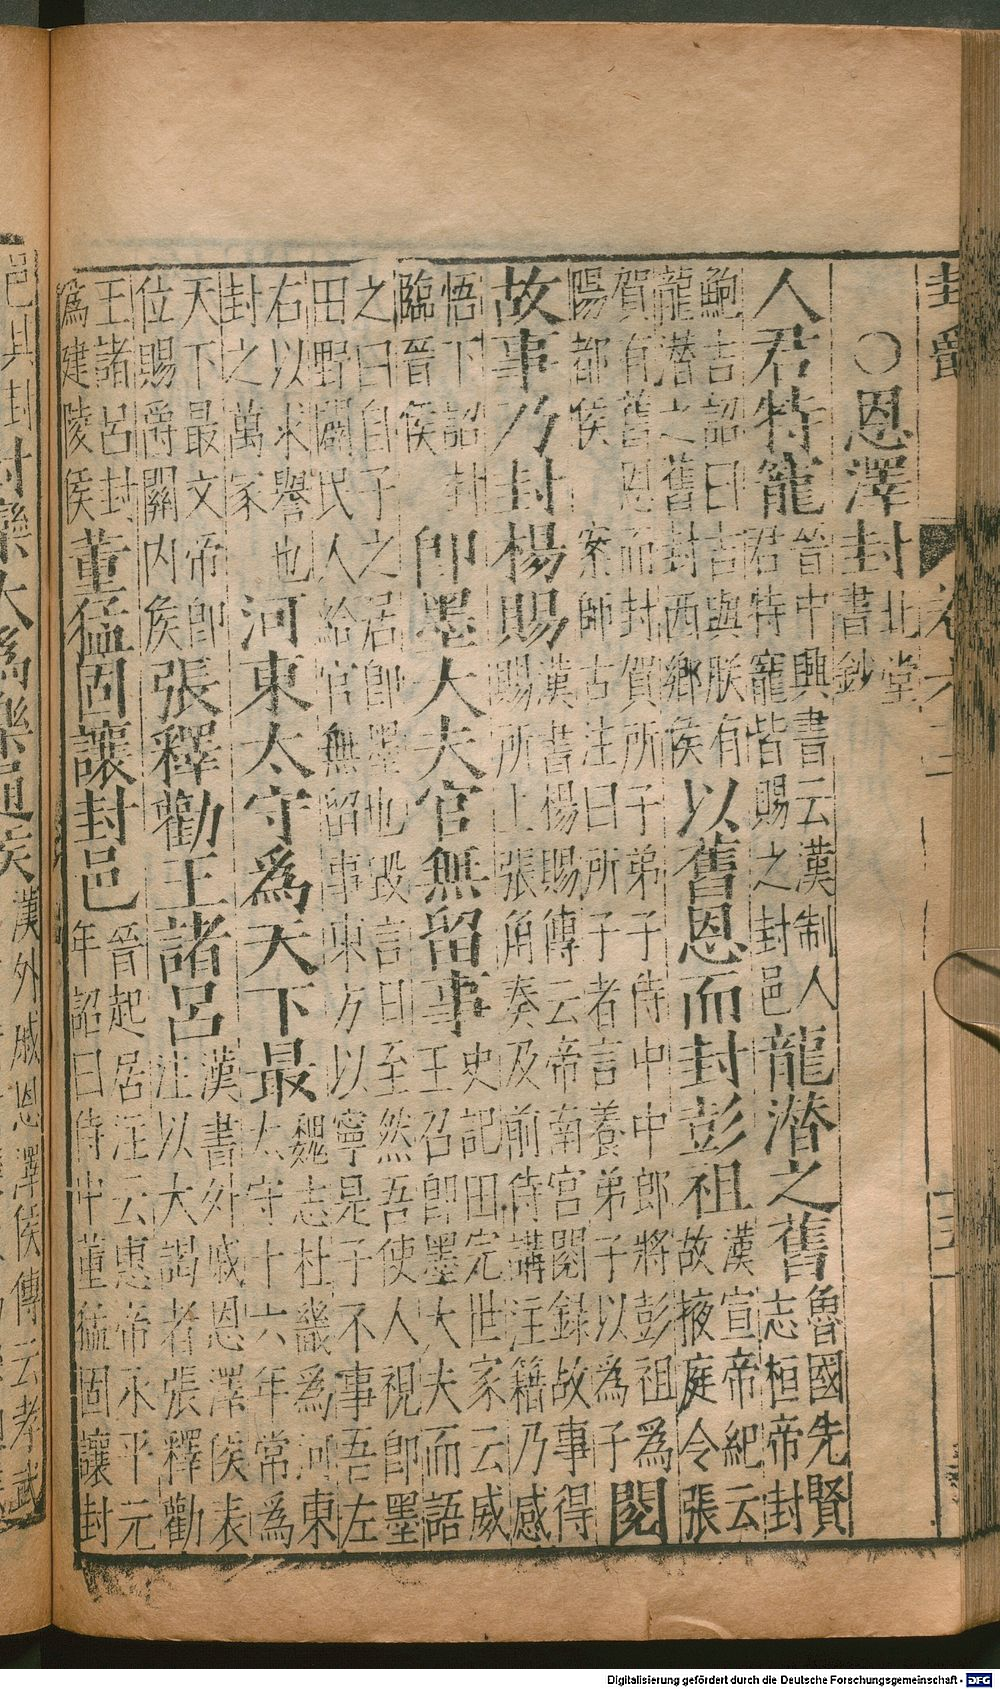 封爵
○恩澤封北堂書鈔
人君特寵晉中興書云漢制人君特寵皆賜之封邑龍潛之舊魯國先賢志桓帝封
鮑吉詔曰吉與朕有龍潛之舊封西鄉侯以舊恩而封彭祖漢宣帝紀云故掖庭令張
賀有舊恩而封賀所子弟子侍中中郎將彭祖為陽都侯案師古注曰所子者言養弟子以為子閱
故事乃封楊賜漢書楊賜傳云帝南宮閱錄故事得賜所上張角奏及前侍講注籍乃感
悟下詔封臨晉侯即墨大夫官無留事史記田完世家云威王召即墨大夫而語
之曰自子之居即墨也毀言日至然吾使人視即墨田野闢民人給官無留事東方以寧是子不事吾左
右以求譽也封之萬家河東太守為天下最魏志杜畿為河東太守十六年常為
天下最文帝即位賜爵關內侯張釋勸王諸呂漢書外戚恩澤侯表注以大謁者張釋勸
王諸呂封為建陵侯董猛固讓封邑晉起居注云惠帝永平元年詔曰侍中董猛固讓封
邑其封封欒大為樂通侯漢外戚恩澤侯傳云孝武
Digitalisierung gefördert durch die Deutsche Forschungsgemeinschaft - DFG